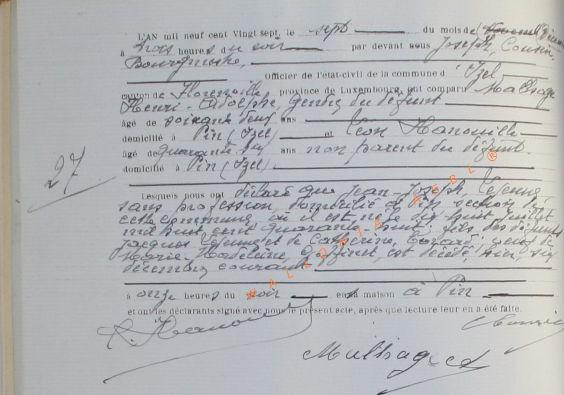 L'AN mil neuf cent Vingt sept, le sept du mois de Décem
à trois heures du soir par devant nous Joseph, Cousin,
Bourgmestre,
Officier de l'état-civil de la commune d'Izel
canton de Florenville province de Luxembourg, ont comparu Malhage
Henri-Adolphe, gendre du défunt
âgé de soixante deux ans
domicilié à Pin (Izel) et Léon Hanouille
âgé de quarante six ans non parent du défunt.
domicilié à Pin (Izel)
27
Lesquels nous ont déclaré que Jean-Joseph Lejeune
sans profession, domicilié à Pin section de
cette commune, où il est né le dix huit juillet
mil huit cent quarante huit, fils des défunts
Jacques Lejeune et de Catherine, veuf de
Marie-Madeleine, Goffinet est décédé hier, six
décembre courant
à onze heures du soir en sa maison à Pin
et ont les déclarants signé avec nous le présent acte, après que lecture leur en a été faite.